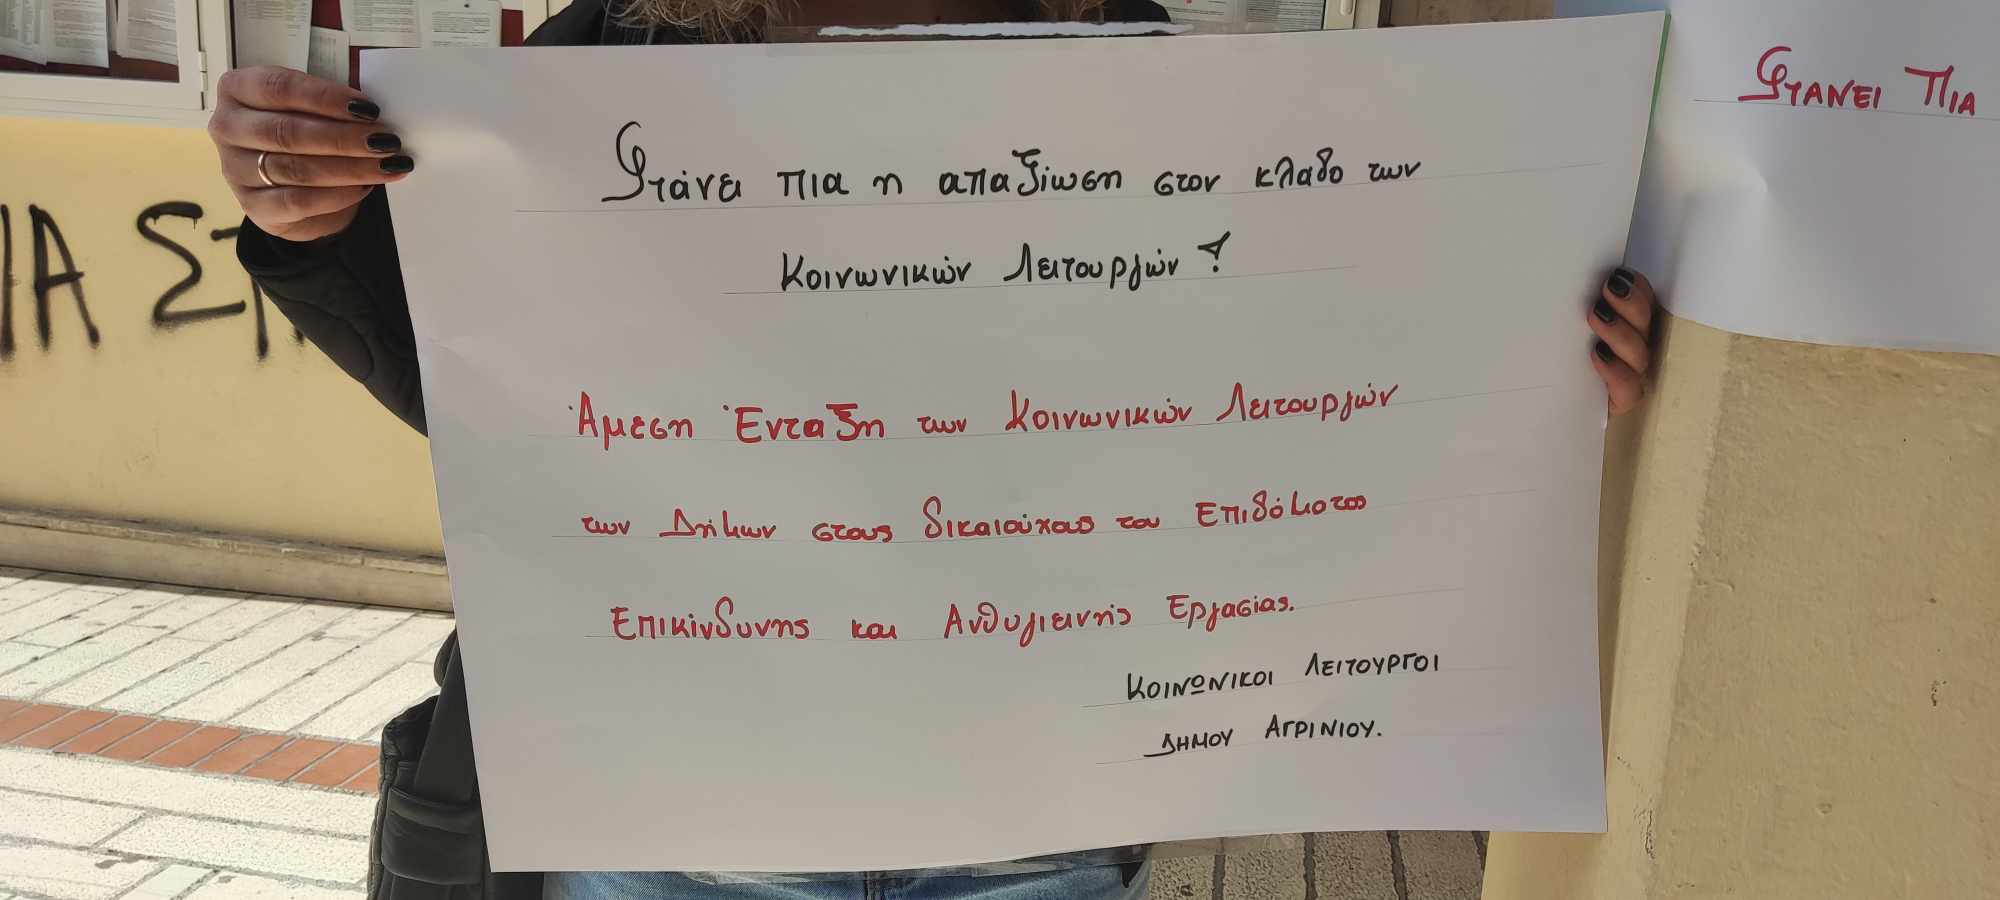 Φτάνει πια η απαξίωση στον κλαδο των
Κοινωνικών Λειτουργών !
Άμεση Ένταξη των Κοινωνικών Λειτουργών
των Δήμων στους δικαιούχους του Επιδόματος
Επικίνδυνης και Ανθυγιεινής Εργασίας.
ΚΟΙΝΩΝΙΚΟΙ ΛΕΙΤΟΥΡΓΟΙ
ΔΗΜΟΥ ΑΓΡΙΝΙΟΥ.
ΦΤΑΝΕΙ ΠΙΑ
ΙΑ ΣΤ